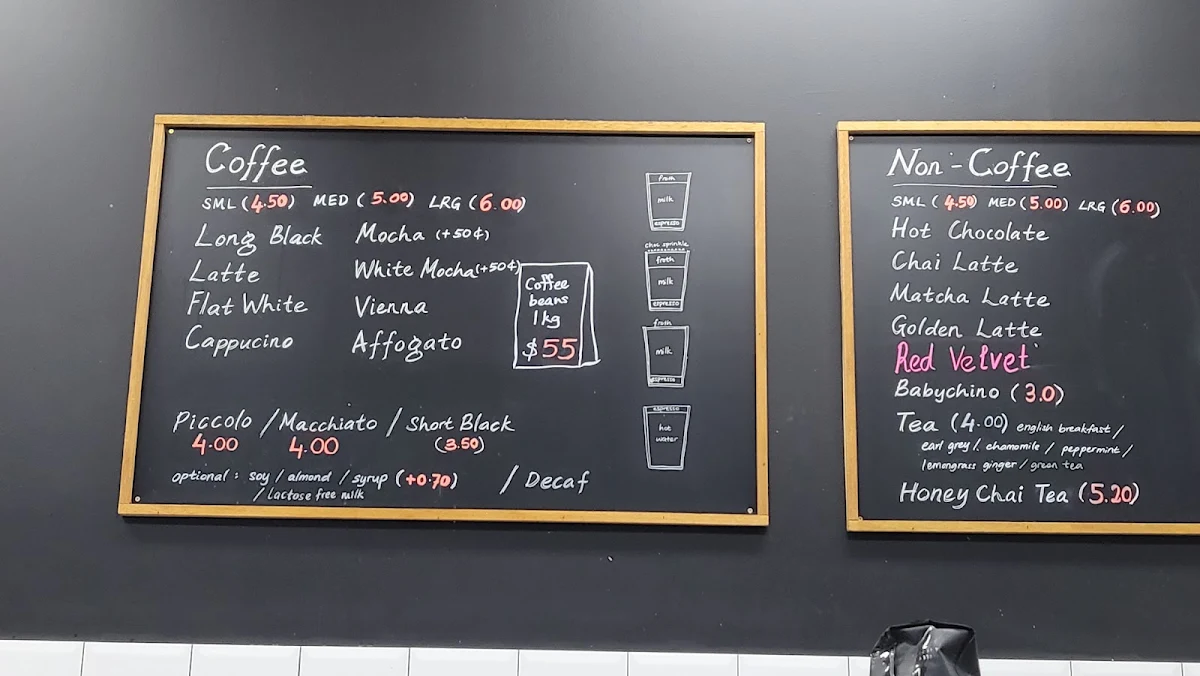 Coffee
SML (4.50) MED (5.00) LRG (6.00)
Long Black Mocha (+50¢)
Latte White Mocha (+50¢)
Flat White Vienna
Cappucino Affogato
Coffee
beans
1kg
$55
Piccolo / Macchiato / Short Black
4.00 4.00 (3.50)
optional : soy / almond / syrup (+0.70) / Decaf
/ lactose free milk
froth
milk
espresso
choc sprinkle
froth
milk
espresso
froth
milk
espresso
espresso
hot
water
Non-Coffee
SML (4.50) MED (5.00) LRG (6.00)
Hot Chocolate
Chai Latte
Matcha Latte
Golden Latte
Red Velvet
Babychino (3.0)
Tea (4.00) english breakfast /
earl grey / chamomile / peppermint /
lemongrass ginger / green tea
Honey Chai Tea (5.20)